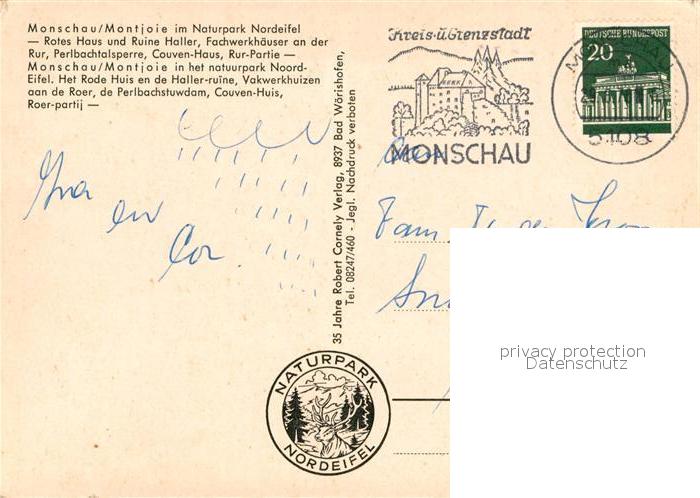 Monschau/Montjoie im Naturpark Nordeifel
— Rotes Haus und Ruine Haller, Fachwerkhäuser an der
Rur, Perlbachtalsperre, Couven-Haus, Rur-Partie —
Monschau/Montjoie in het natuurpark Noord-
Eifel. Het Rode Huis en de Haller-ruïne, Vakwerkhuizen
aan de Roer, de Perlbachstuwdam, Couven-Huis,
Roer-partij —
Kreis-u.Grenzstadt
MONSCHAU
DEUTSCHE BUNDESPOST
20
5108
35 Jahre Robert Cornely Verlag, 8937 Bad Wörishofen,
Tel. 08247/460 - Jegl. Nachdruck verboten
en
Cor
Fam
NATURPARK
NORDEIFEL
privacy protection
Datenschutz